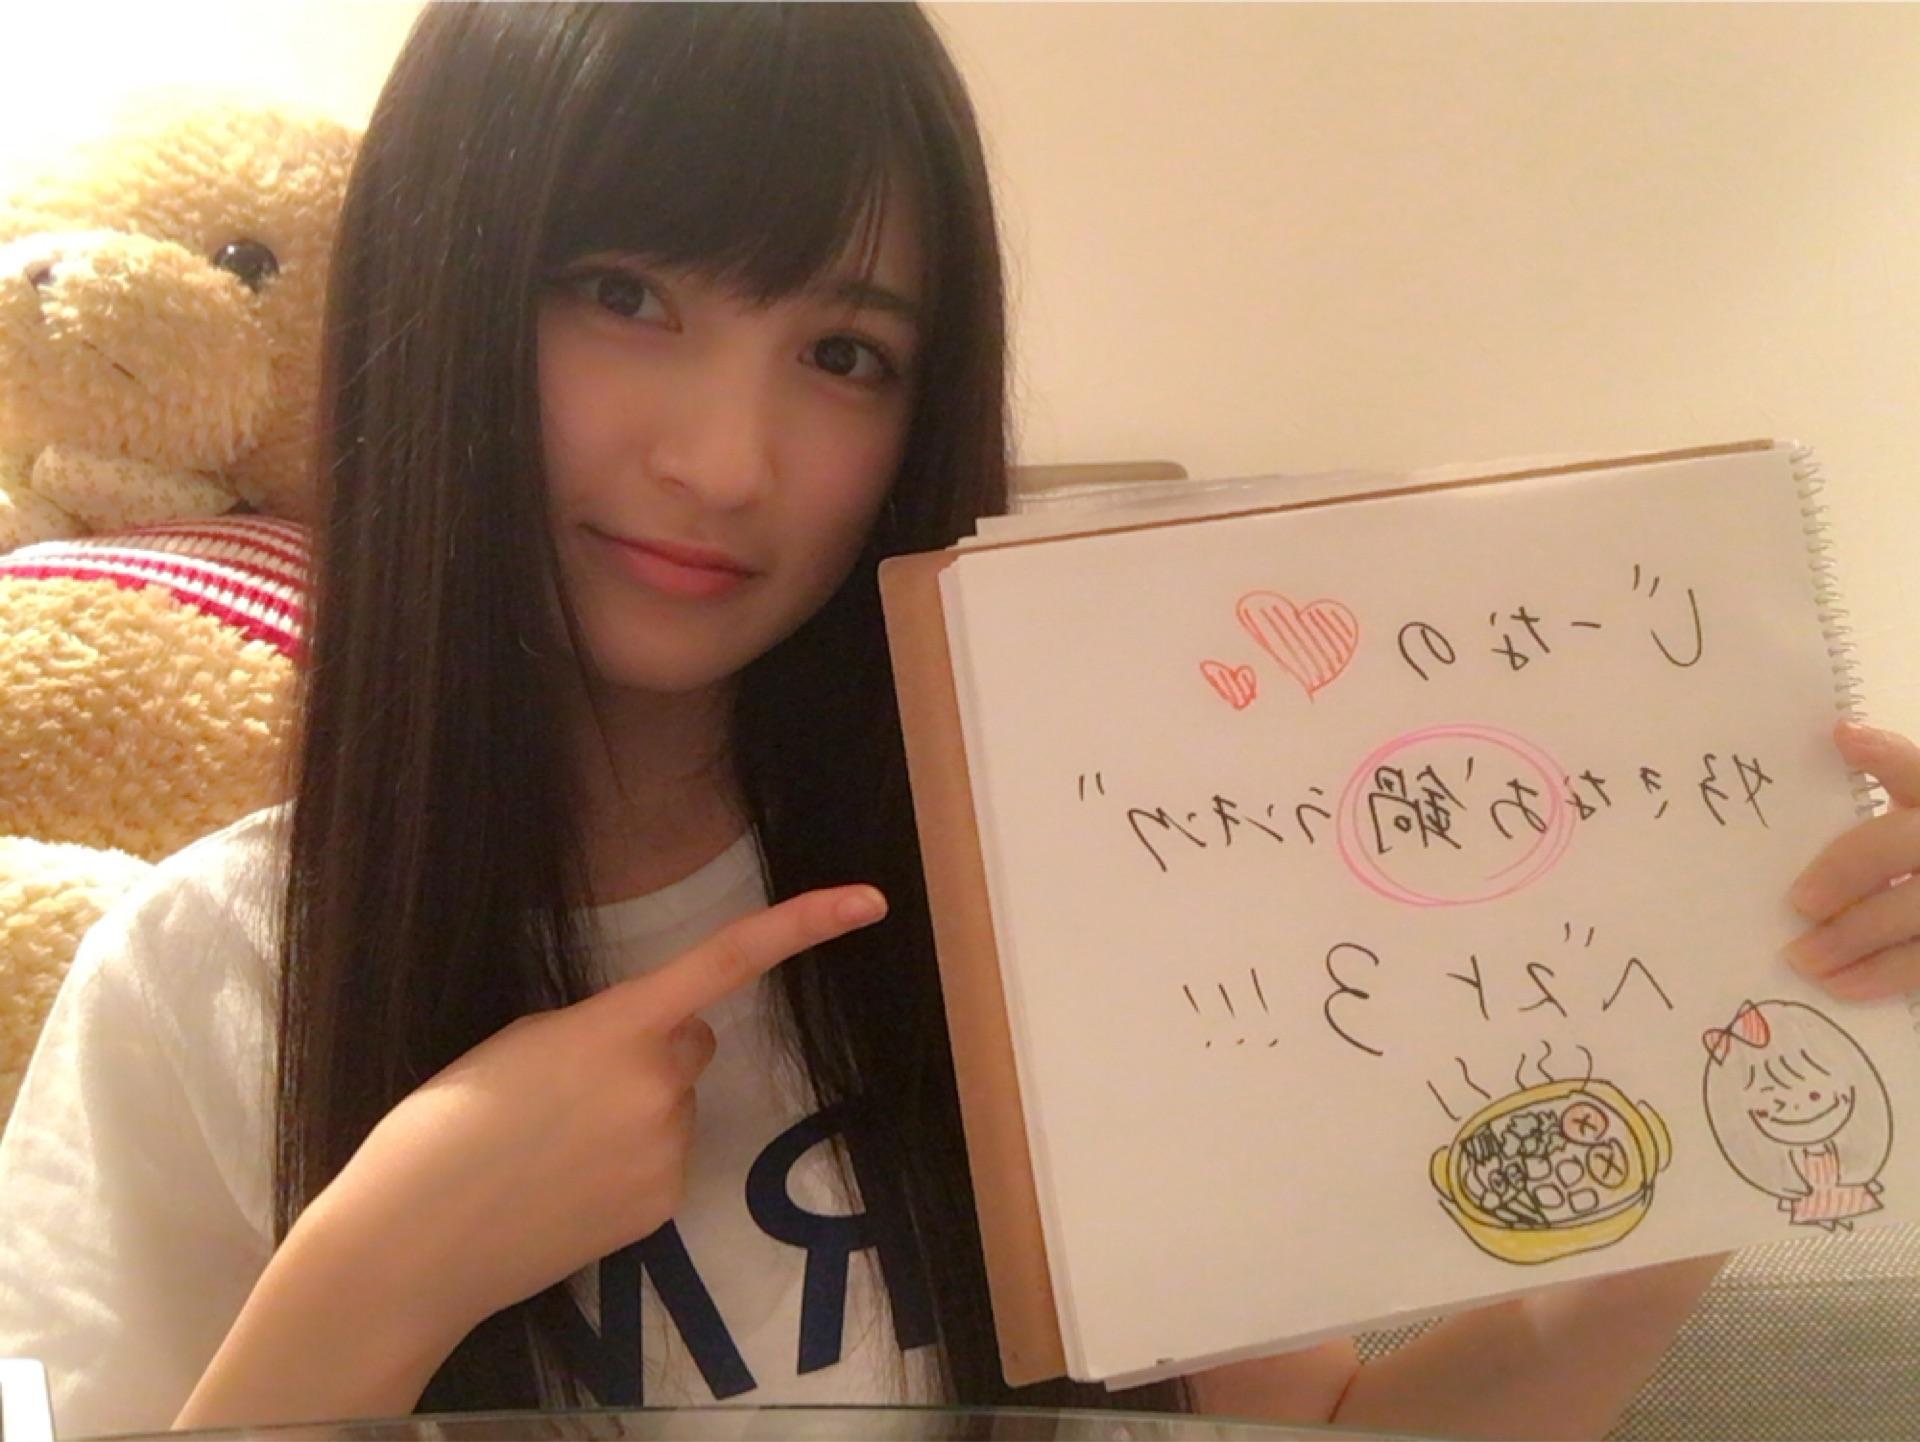 じーなの
好きなお鍋ランキング
ベスト3!!!
RM